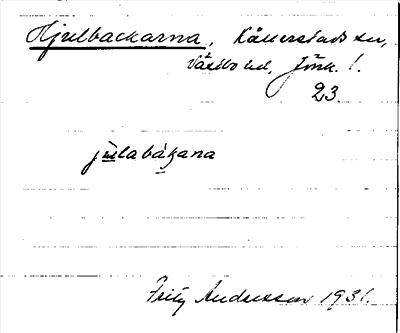 Hjulbackarna, Kållerstads sn,
Västbo hd, Jönk. l.
23.
julabakana
Fritz Andersson 1931.